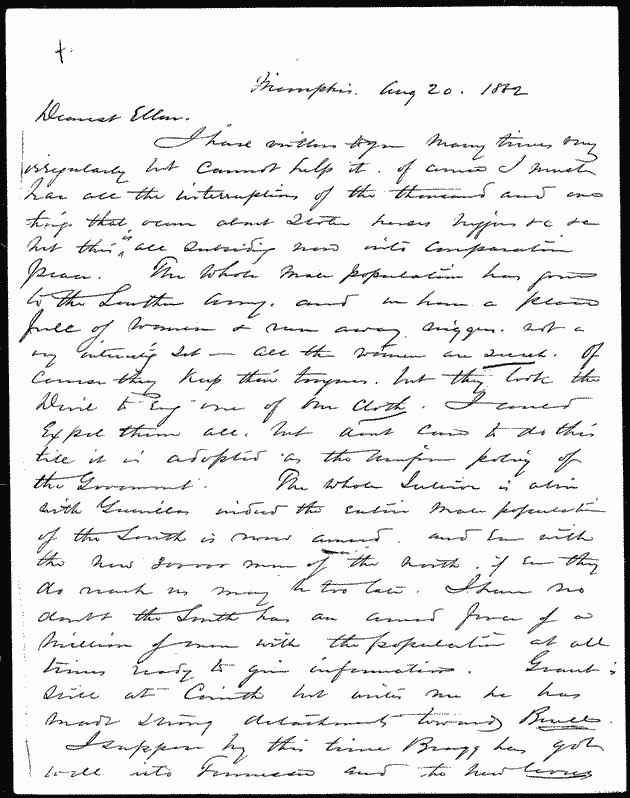 Memphis. Aug 20. 1862
Dearest Ellen.
I have written to you many times very
irregularly but cannot help it. of course I must
has all the interruptions of the thousand and one
things that occur about stolen horses niggers &c &c
but this is all subsiding now into comparative
Peace. The whole male population has gone
to the Southern Army. and we have a place
full of women & run away niggers. not a
very interesting set — all the women are secesh. Of
course they keep their tongues. but they look the
Devil to Eny one of our cloth. I could
Expel them all. but dont care to do this
till it is adopted as the uniform policy of
the Government. The whole Interior is alive
with Guerillas indeed the entire male population
of the South is now armed. and Even with
the new 300000 men of the north. if Ever they
do reach us may be too late. I have no
doubt the South has an armed force of a
Million of men with the population at all
times ready to give information. Grant is
still at Corinth but writes me he has
made strong detachments towards Buell.
I suppose by this time Bragg has got
well into Tennessee and the new levies